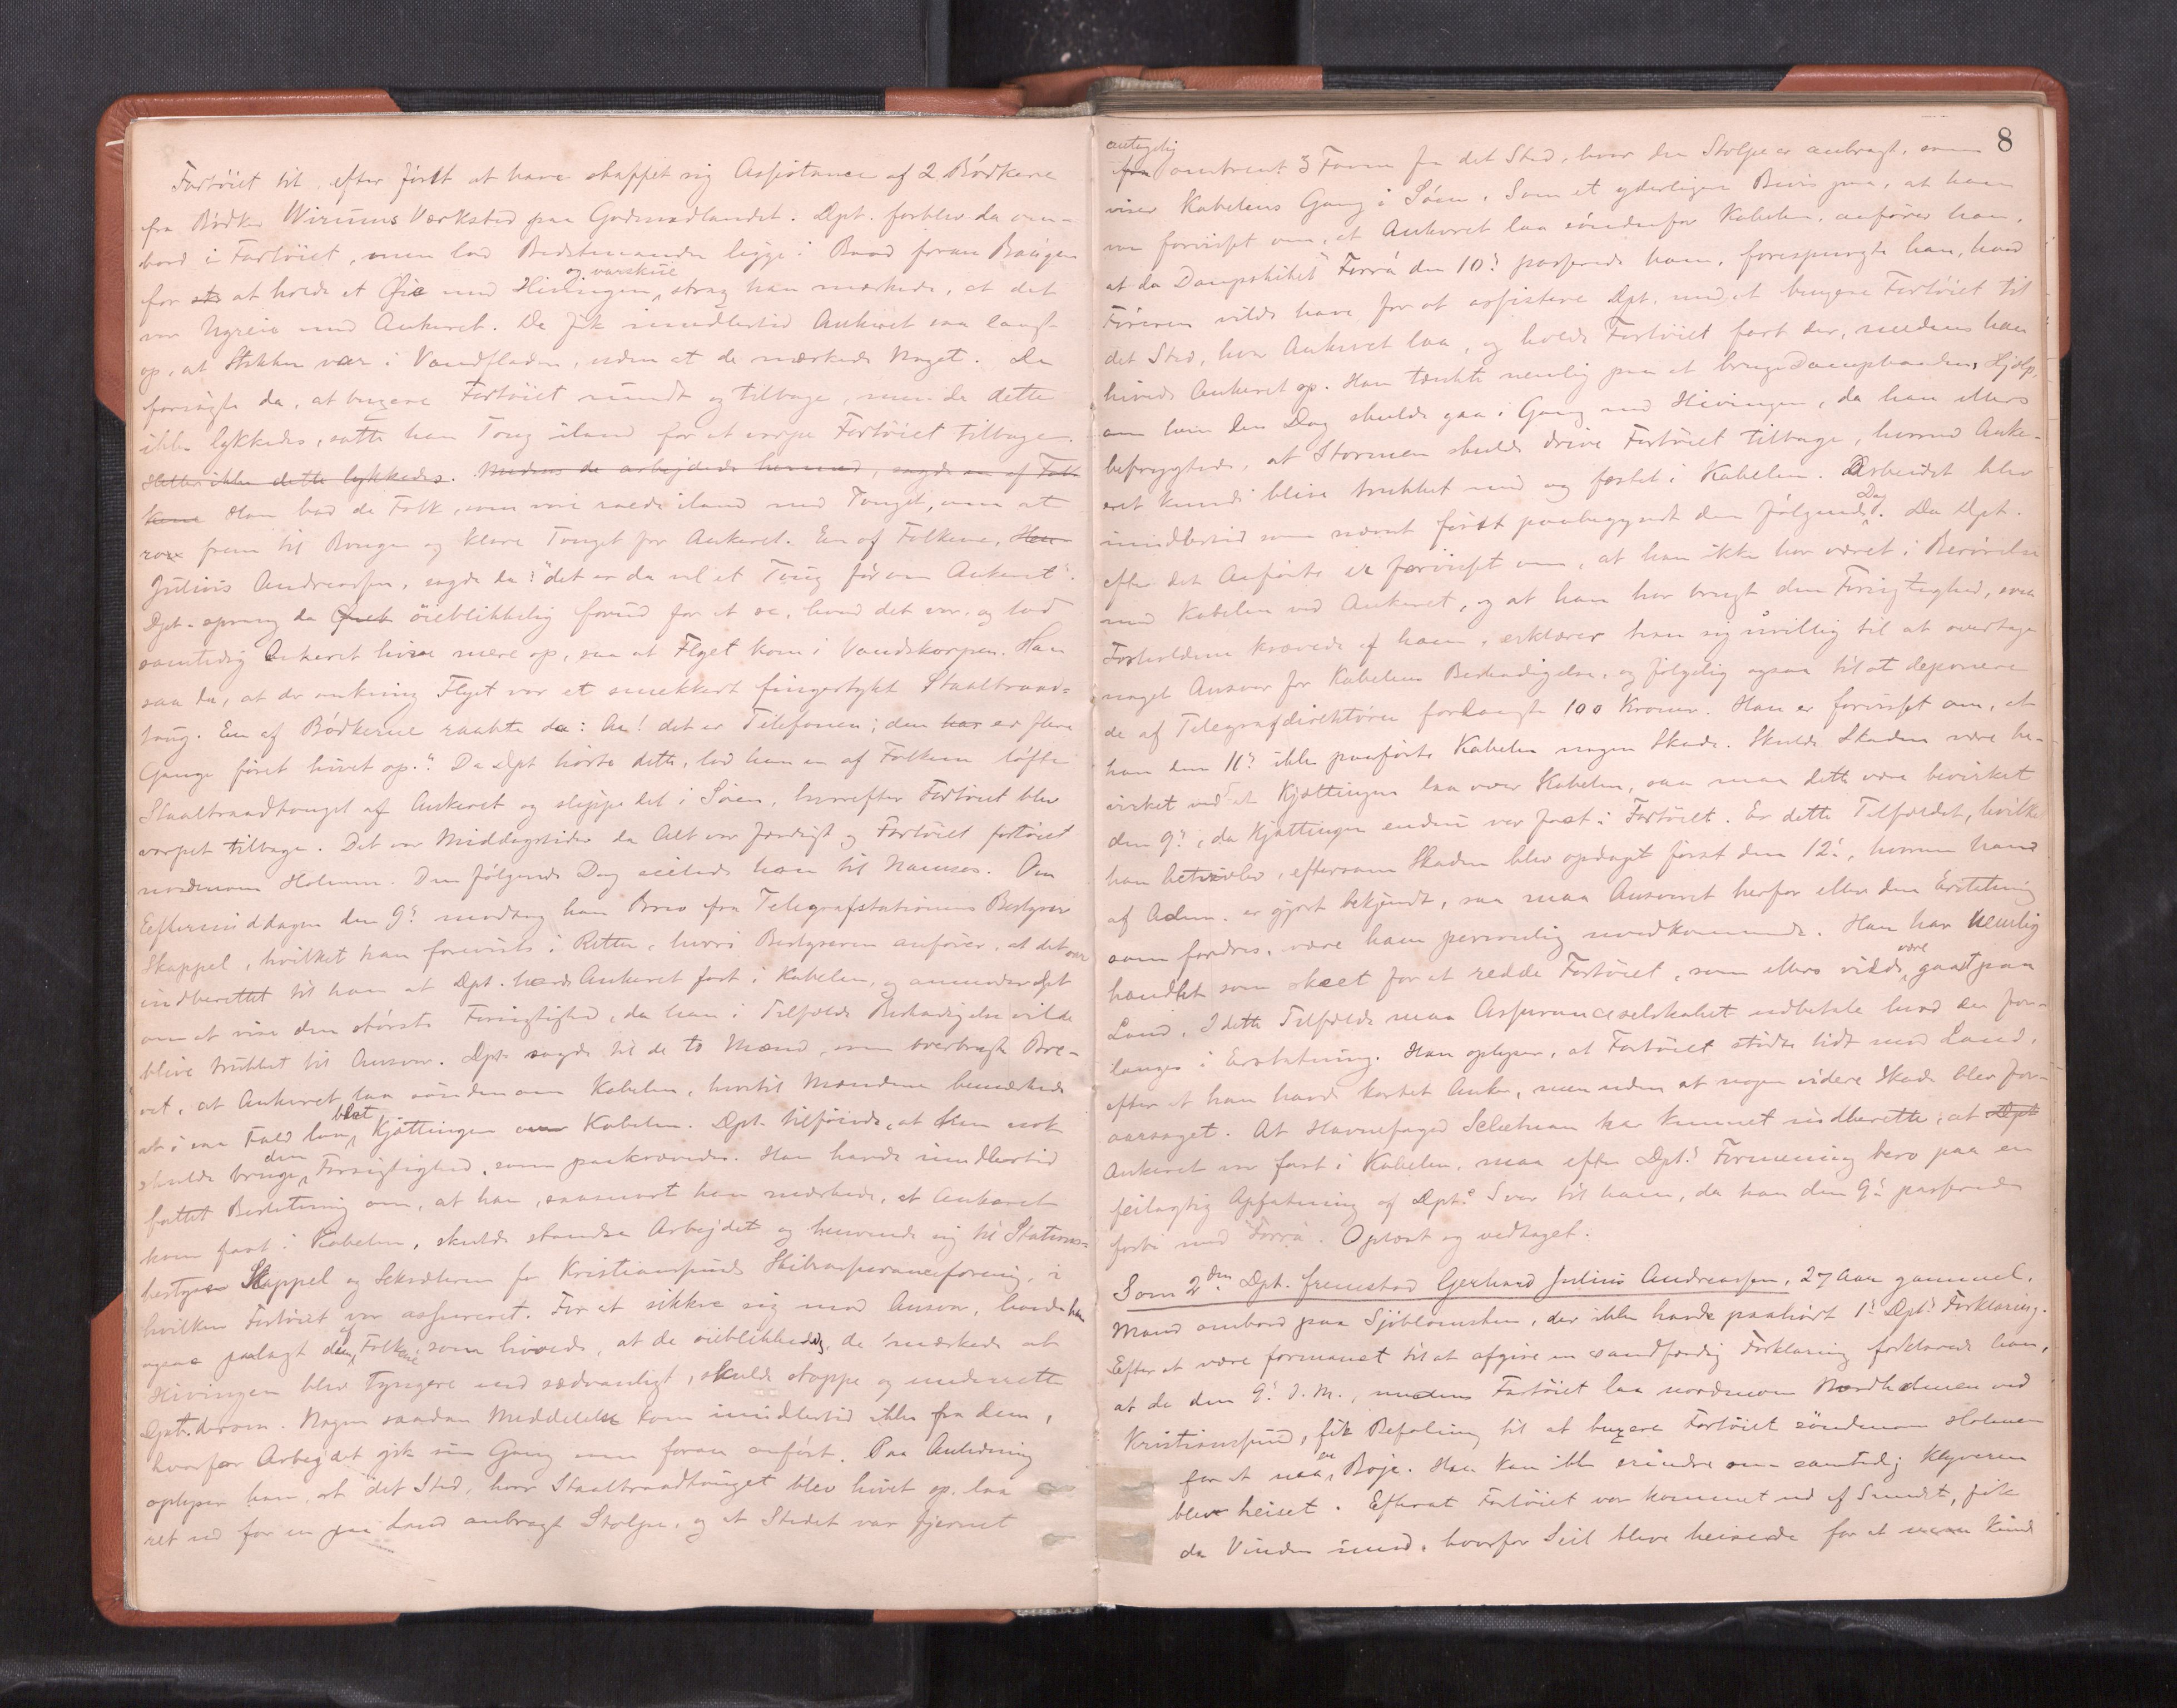 Fartöiet til, efter först at have skaffet sig Assistance af 2 Bödkere
fra Bödker Wirums Værksted paa Gomalandet. Dpt. forblev da om-
bord i Fartöiet, men lod Bedstemanden ligge i Baad foran Baugen
for at holde et Öie med Hivingen og varskue strax han mærkede, at det
var Ugreie med Ankeret. De fik imidlertid Ankeret saa langt
op, at Stokken var i Vandfladen, uden at de mærkede Noget. De
forsögte da, at buxere Fartöiet rundt og tilbage, men da dette
ikke lykkedes, satte han Toug iland for at varpe Fartöiet tilbage.
Heller ikke dette lykkedes. Medens de arbejdede hermed, sagde en af Folk
kene Han bad de Folk, som var roede iland med Touget, om at
roe frem til Bougen og klare Touget for Ankeret. En af Folkene,
Julius Andreassen, sagde da: "det er da vel et Toug för om Ankeret".
Dpt. sprang da öieblikkelig forud for at se, hvad det var, og lod
samtidig Ankeret hive mere op, saa at Flyet kom i Vandskorpen. Han
saa da, at der omkring Flyet var et smekkert fingertykt Staaltraad-
toug. En af Bödkerne raabte da: Aa! det er Telefonen; den har er flere
Gange föret hivet op." Da Dpt hörte dette, lod han en af Folkene löfte
Staaltraadtouget af Ankeret og slippe det i Söen, hvorefter Fartöiet blev
varpet tilbage. Det var Middagstider da Alt var færdigt og Fartöiet fortöiet
nordenom Holmen. Den fölgende Dag seilede han til Namsos. Om
Eftermiddagen den 9de modtog han Brev fra Telegrafstationens Bestyrer
Skappel, hvilket han foreviste i Retten, hvori Bestyreren anförer, at det var
indberettet til ham at Dpt. havde Ankeret fast i Kabelen, og anmoder Dpt
om at vise den störste Forsigtighed, da han i Tilfælde Beskadigelse vilde
blive trukket til Ansvar. Dpt. sagde til de to Mænd, som overbragte Bre-
vet, at Ankeret laa söndenom Kabelen, hvortil Mændene bemærkede
at i saa Fald laa blot Kjættingen over Kabelen. Dpt. tilföiede, at han nok
skulde bruge den Forsigtighed, som paakrævedes. Han havde imidlertid
fattet Beslutning om, at han, saasnart han mærkede, at Ankeret
kom fast i Kabelen, skulde standse Arbejdet og henvende sig til Stations-
bestyrer Skappel og Sekretæren for Kristianssunds Skibsassuranceforening, i
hvilken Fartöiet var assureret. For at sikkre sig mod Ansvar, havde han
ogsaa paalagt de af Folkene, som hivede, at de öieblikkelig, de mærkede at
Hivingen blev tyngere end sædvanligt, skulde stoppe og underrette
Dpt. derom. Nogen saadan Meddelelse kom imidlertid ikke fra dem,
hvorfor Arbejdet gik sin Gang som foran anfört. Paa Anledning
oplyser han, at det Sted, hvor Staaltraadtouget blev hivet op, laa
ret ud for en paa Land anbragt Stolpe, og at Stedet var fjernet
8
antagelig
fra omtrent 3 Favne fra det Sted, hvor den Stolpe er anbragt, som
viser Kabelens Gang i Söen. Som et yderligere Bevis paa, at han
var forvisset om, at Ankeret laa söndenfor Kabelen, anförer han,
at da Dampskibet "Forra" den 10de passerede ham, forespurgte han, hvad
Föreren vilde have for at assistere Dpt. med at buxere Fartöiet til
det Sted, hvor Ankeret laa, og holde Fartöiet fast der, medens han
hivede Ankeret op. Han tænkte nemlig paa at bruge Dampbaadens Hjælp,
om han den Dag skulde gaa i Gang med Hivingen, da han ellers
befrygtede, at Stormen skulde drive Fartöiet tilbage, hvorved Anke-
ret kunde blive trukket med og fæstet i Kabelen. Arbeidet blev
imidlertid som nævnt först paabegyndt den fölgende Dag. Da Dpt.
efter det Anförte er forvisset om, at han ikke har været i Berörelse
med Kabelen ved Ankeret, og at han har brugt den Forsigtighed, som
Forholdene krævede af ham, erklærer han sig uvillig til at overtage
noget Ansvar for Kabelens Beskadigelse, og fölgelig ogsaa til at deponere
de af Telegrafdirektören forlangte 100 Kroner. Han er forvisset om, at
han den 11te ikke paaförte Kabelen nogen Skade. Skulde Skaden være be-
virket ved at Kjættingen laa over Kabelen, saa maa dette være bevirket
den 9de, da Kjættingen endnu var fast i Fartöiet. Er dette Tilfældet, hvilket
han betvivler, eftersom Skaden blev opdaget först den 12te, hvorom han
af Adm. er gjort bekjendt, saa maa Ansvaret herfor eller den Erstatning
som fordres, være ham personlig uvedkommende. Han har nemlig
handlet som skeet for at redde Fartöiet, som ellers vilde være gaaet paa
Land. I dette Tilfælde maa Assuranceselskabet udbetale hvad der for-
langes i Erstatning. Han oplyser, at Fartöiet stödte lidt mod Land,
efter at han havde kastet Anker, men uden at nogen videre Skade blev for-
aarsaget. At Havnefoged Schetman har kunnet indberette, at Dpt
Ankeret var fast i Kabelen, maa efter Dpts Formening bero paa en
feilagtig Opfatning af Dpts Svar til ham, da han den 9de passerede
forbi med "Forra". Oplæst og vedtaget.
Som 2den Dpt. fremstod Gerhard Julius Andreassen, 27 Aar gammel,
Mand ombord paa Sjöblomsten, der ikke havde paahört 1ste Dpts Forklaring.
Efter at være formanet til at afgive en sandfærdig Forklaring forklarede han,
at de den 9de d. M., medens Fartöiet laa nordenom Nordholmen ved
Kristianssund, fik Befaling til at buxere Fartöiet söndenom Holmen
for at naa en Böje. Han kan ikke erindre om samtidig Klyveren
blev heiset. Efterat Fartöiet var kommet ud af Sundet, fik
de Vinden imod, hvorfor Seil bleve heisede for at man kunde